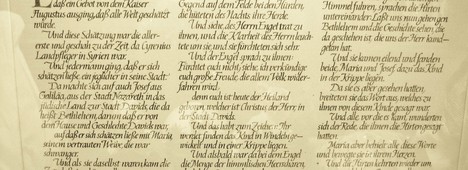 daß ein Gebot von dem Kaiser
Augustus ausging, daß alle Welt geschätzt
würde.
Und diese Schätzung war die aller-
erste und geschah zu der Zeit, da Cyrenius
Landpfleger in Syrien war.
Und jedermann ging, daß er sich
schätzen ließe, ein jeglicher in seine Stadt.
Da machte sich auf auch Josef aus
Galiläa, aus der Stadt Nazareth in das
jüdische Land zur Stadt Davids, die da
heißt Bethlehem, darum daß er von
dem Hause und Geschlechte Davids war,
auf daß er sich schätzen ließe mit Maria,
seinem vertrauten Weibe, die war
schwanger.
Und als sie daselbst waren, kam die
Gegend auf dem Felde bei den Hürden,
die hüteten des Nachts ihre Herde.
Und siehe, des Herrn Engel trat zu
ihnen, und die Klarheit des Herrn leuch-
tete um sie; und sie fürchteten sich sehr.
Und der Engel sprach zu ihnen:
Fürchtet euch nicht, siehe, ich verkündige
euch große Freude, die allem Volk wider-
fahren wird;
denn euch ist heute der Heiland
geboren, welcher ist Christus, der Herr, in
der Stadt Davids.
Und das habt zum Zeichen: Ihr
werdet finden das Kind in Windeln ge-
wickelt und in einer Krippe liegen.
Und alsbald war da bei dem Engel
die Menge der himmlischen Heerscharen,
Himmel fuhren, sprachen die Hirten
untereinander: Laßt uns nun gehen gen
Bethlehem und die Geschichte sehen, die
da geschehen ist, die uns der Herr kund-
getan hat.
Und sie kamen eilend und fanden
beide, Maria und Josef, dazu das Kind
in der Krippe liegen.
Da sie es aber gesehen hatten,
breiteten sie das Wort aus, welches zu
ihnen von diesem Kinde gesagt war.
Und alle, vor die es kam, wunderten
sich der Rede, die ihnen die Hirten gesagt
hatten.
Maria aber behielt alle diese Worte
und bewegte sie in ihrem Herzen.
Und die Hirten kehrten wieder um,